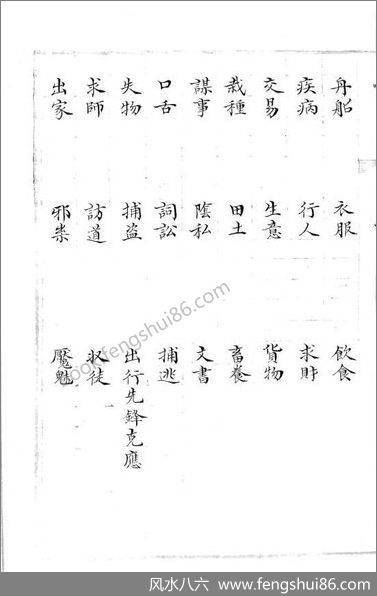 舟船 衣服 飲食
疾病 行人 求財
交易 生意 貨物
栽種 田土 畜養
謀事 陰私 文書
口舌 詞訟 捕逃
失物 捕盜 出行先鋒克應
求師 訪道 收徒
出家 邪祟 魘魅
book.fengshui86.com
风水八六 www.fengshui86.com